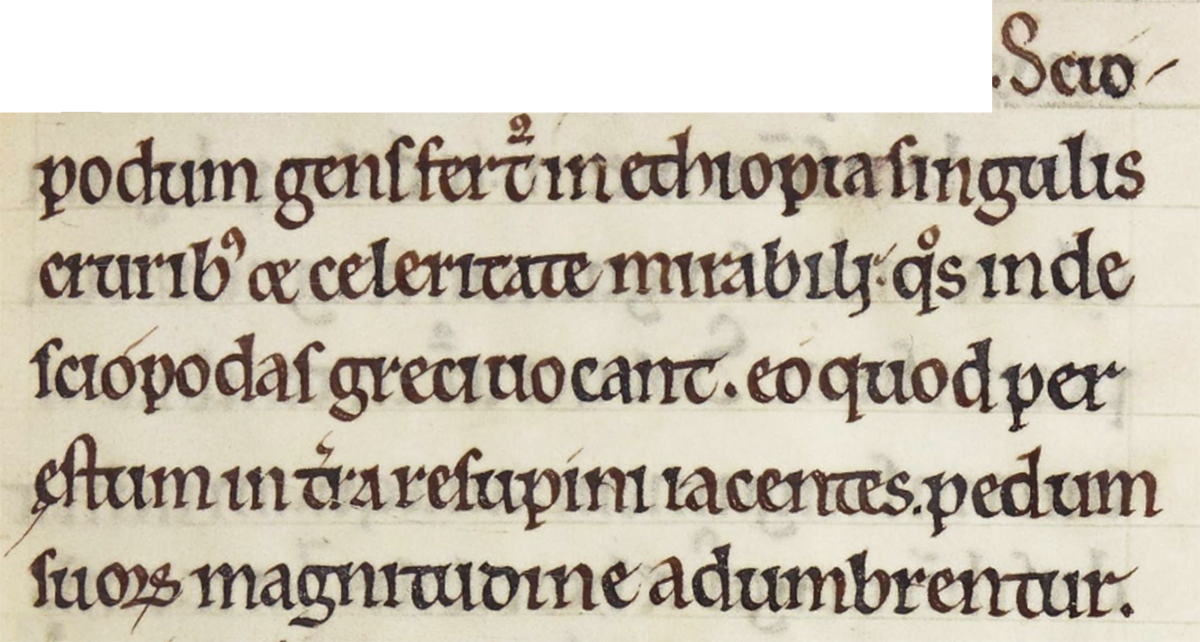 . Scio-
podum gens fert᷑ in ethiopia singulis
cruribꝰ & celeritate mirabili; qͦs inde
sciopodas greci uocant. eo quod per
ęstum in tr̄ra resupini iacentes. pedum
suoꝝ magnitudine adumbrentur.